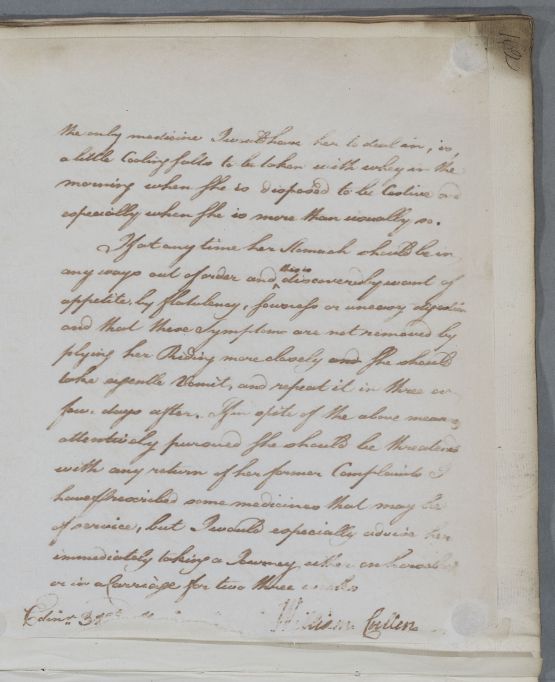 the only medicine I would have her to deal in, is,
a little Cooling salts to be taken with whey in the
morning when she is disposed to be Costive and
especially when she is more than usually so.
If at any time her Stomach should be in
any ways out of order and this is discovered by want of
appetite, by flatulency, sowrness or uneasy digestion
and that these Symptoms are not removed by
plying her Riding more closely and she should
take a gentle Vomit, and repeat it in three or
four days after. If in spite of the above means
attentively pursued she should be threatened
with any return of her former Complaints I
have prescribed some medicines that may be
of service, but I would especially advise her
immediately taking a Journey either on horseback
or in a Carriage for two three weeks
Edinr. William Cullen